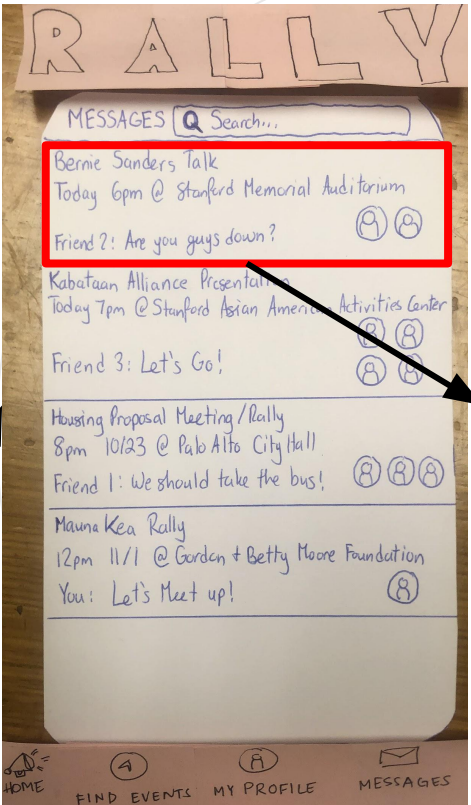 RALLY
MESSAGES Search...
Bernie Sanders Talk
Today 6pm @ Stanford Memorial Auditorium
Friend 2: Are you guys down?
Kabataan Alliance Presentation
Today 7pm @ Stanford Asian American Activities Center
Friend 3: Let's Go!
Housing Proposal Meeting/Rally
8pm 10/23 @ Palo Alto City Hall
Friend 1: We should take the bus!
Mauna Kea Rally
12pm 11/1 @ Gordon + Betty Moore Foundation
You: Let's Meet up!
HOME FIND EVENTS MY PROFILE MESSAGES